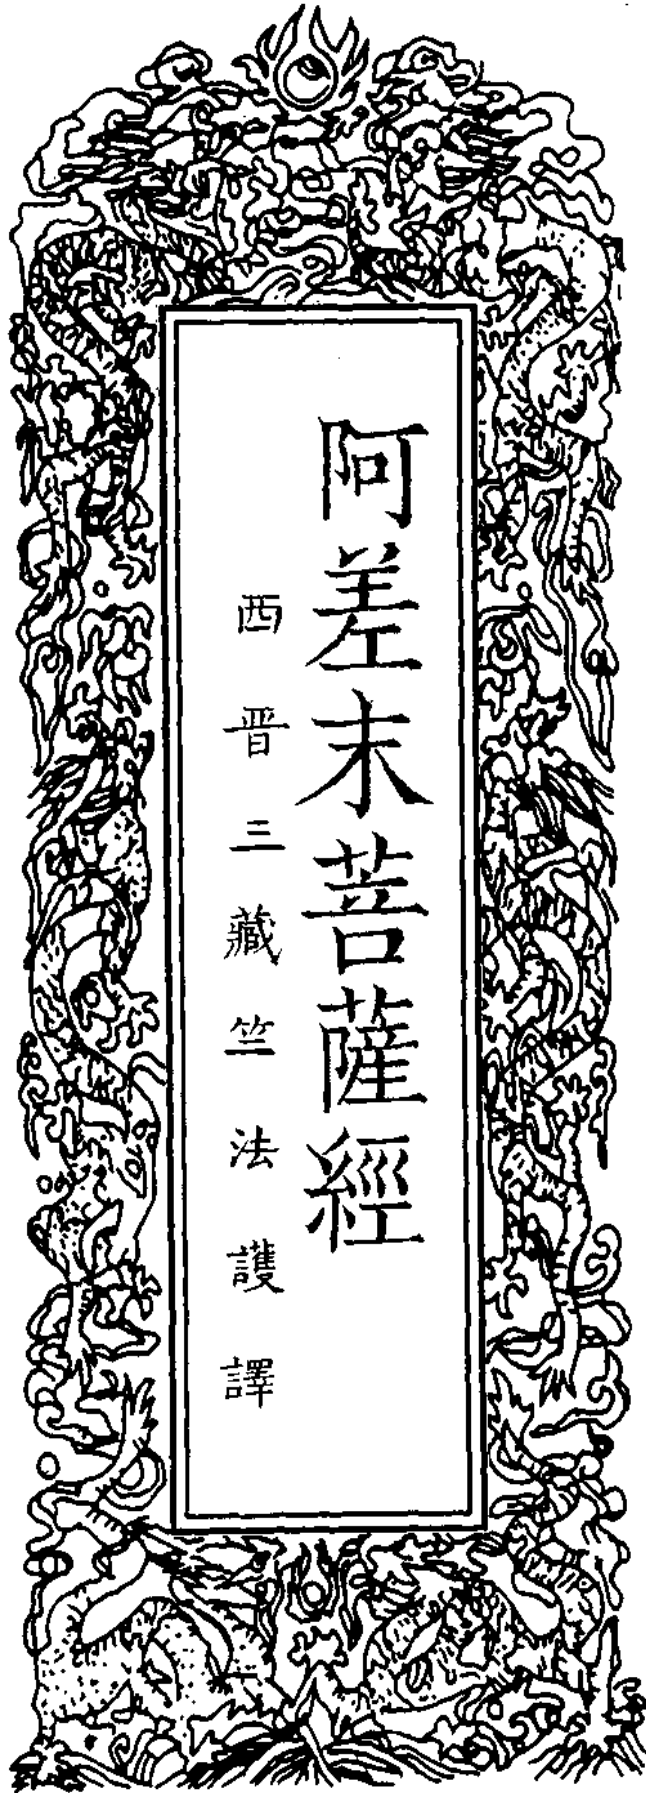 阿差末菩薩經
西晋三藏竺法護譯